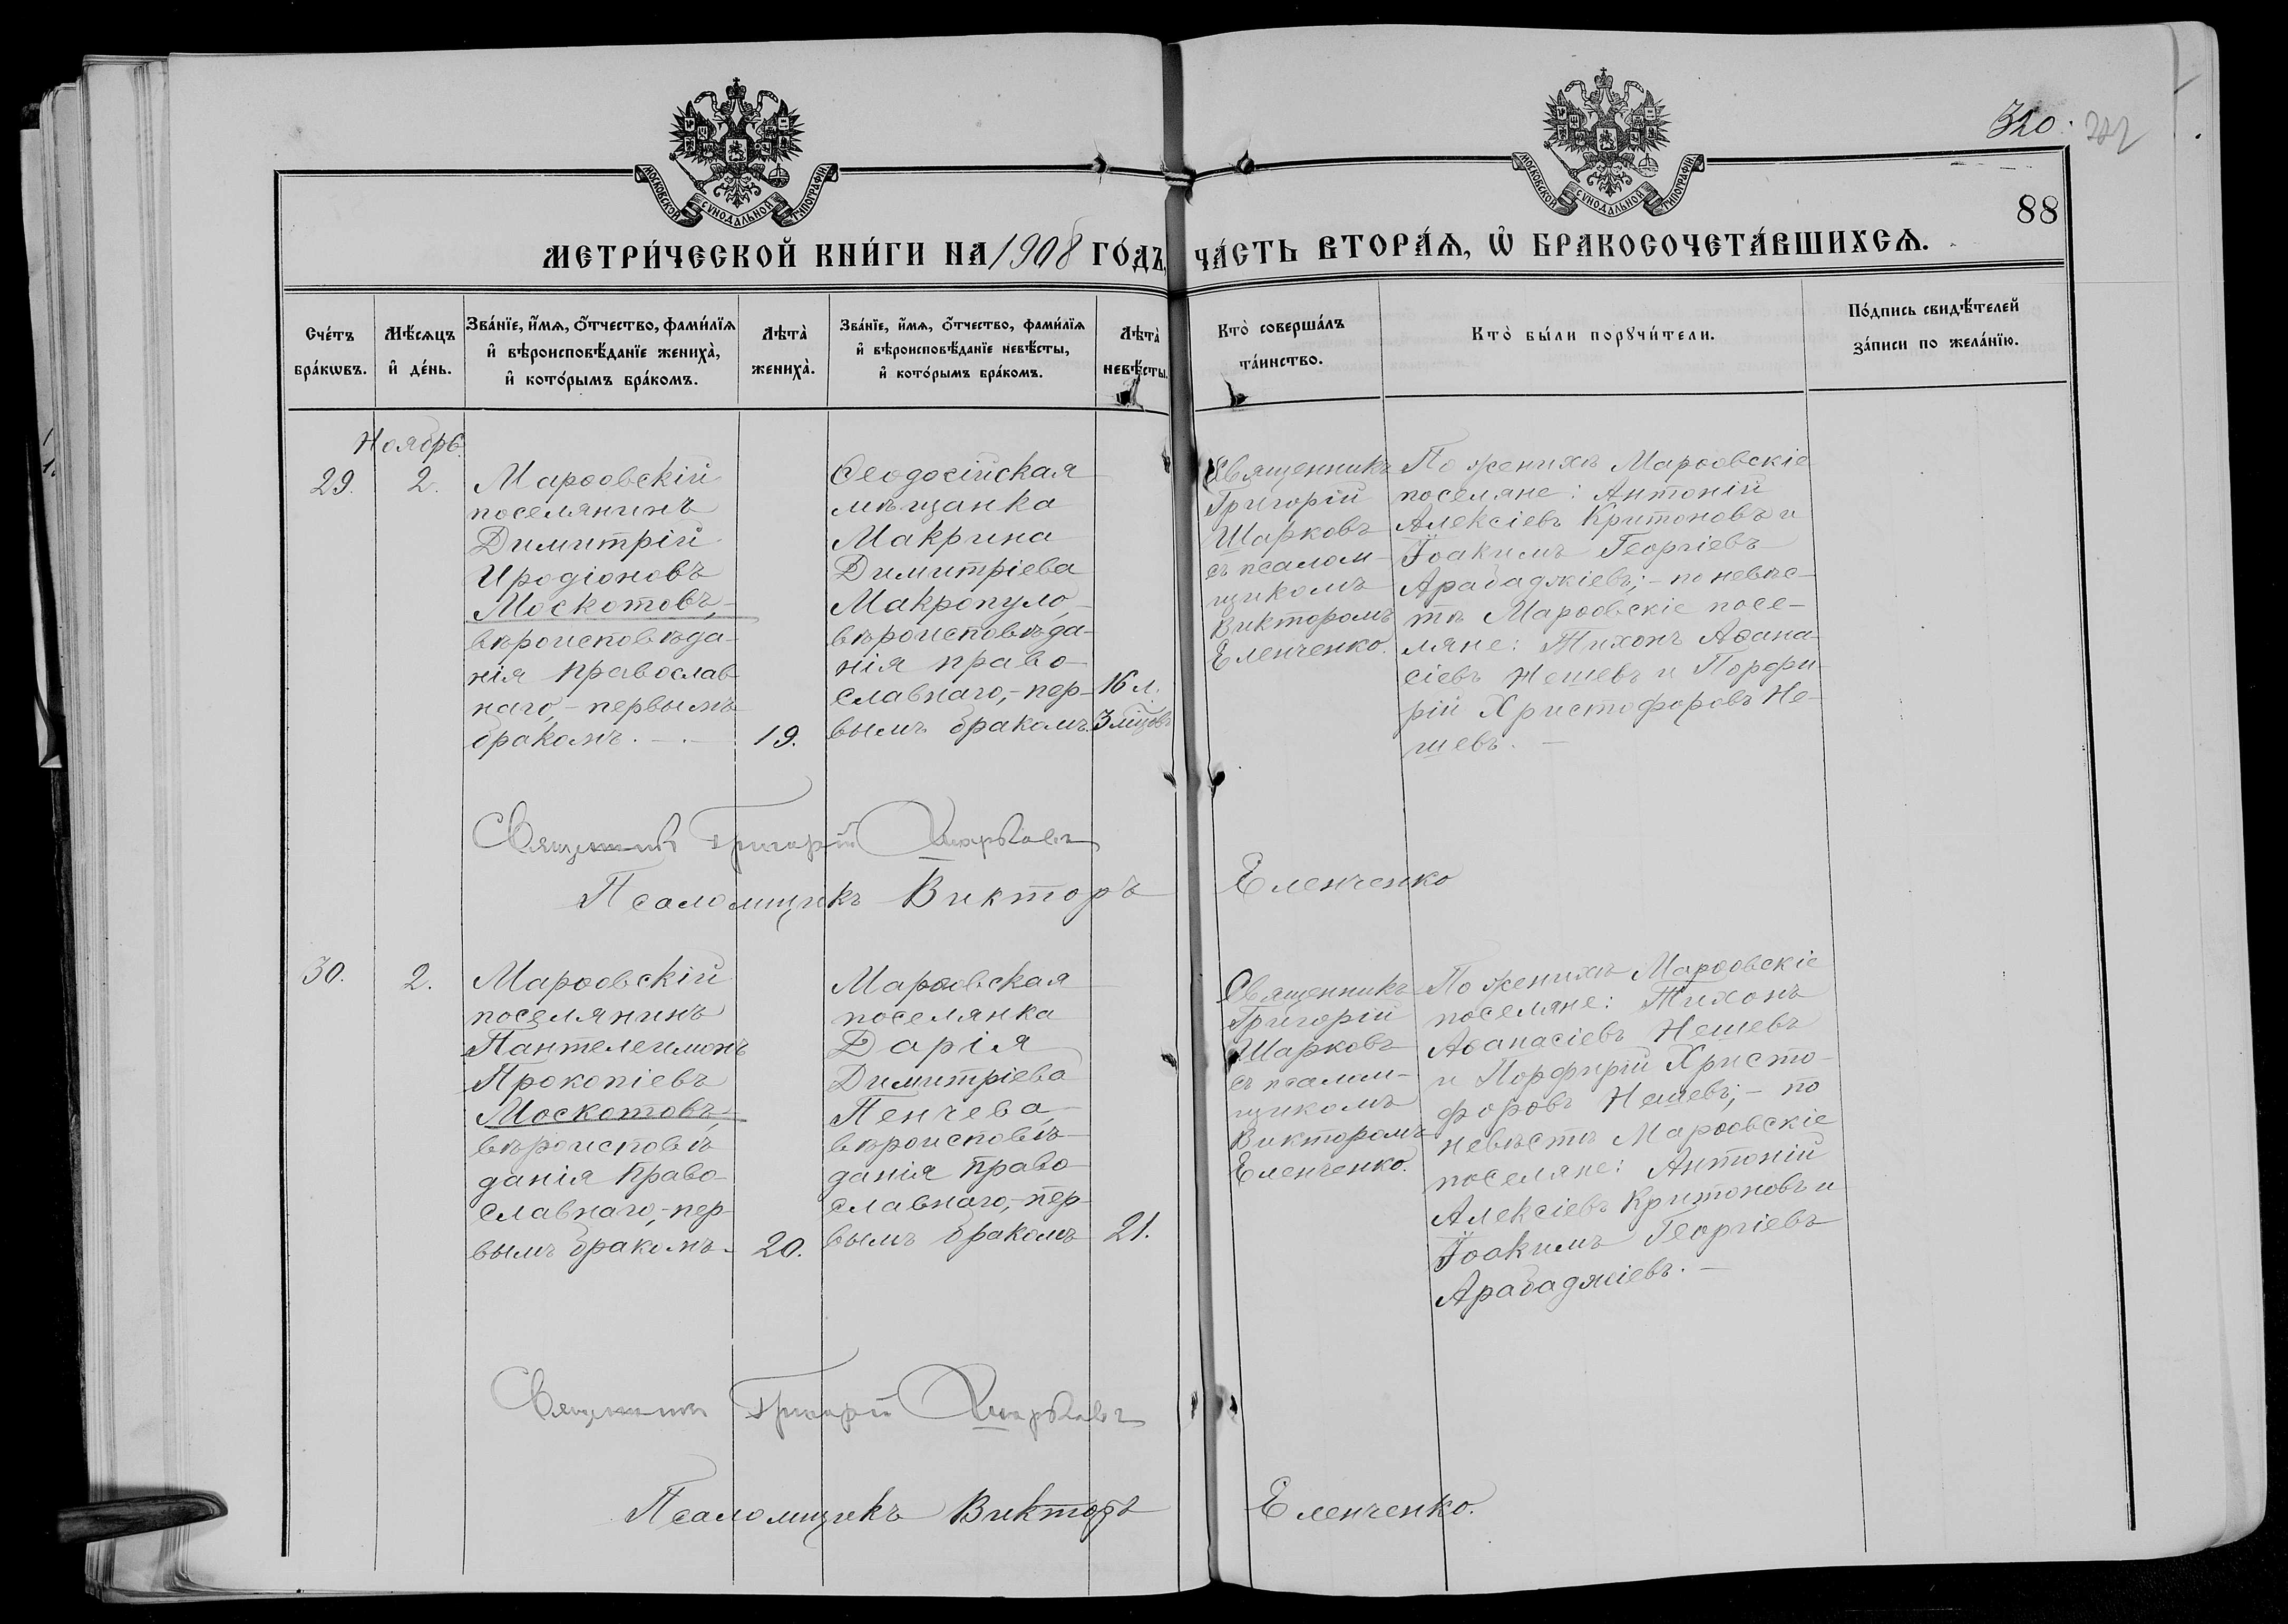 320.
88
МОСКОВСКОЙ СѴНОДАЛЬНОЙ ТИПОГРАФІИ
МОСКОВСКОЙ СѴНОДАЛЬНОЙ ТИПОГРАФІИ
МЕТРИ́ЧЕСКОЙ КНИ́ГИ НА 1908 ГО́ДЪ, ЧА́СТЬ ВТОРА́Ѧ, Ѽ БРАКОСОЧЕТА́ВШИХСѦ.
Сче́тъ
бра́кѡвъ.
Мѣ́сѧцъ
и҆ де́нь.
Зва́нїе, и҆́мѧ, ѻ҆́тчество, фами́лїѧ
и҆ вѣроисповѣ́данїе жениха̀,
и҆ кото́рымъ бра́комъ.
Лѣта̀
жениха̀.
Зва́нїе, и҆́мѧ, ѻ҆́тчество, фами́лїѧ
и҆ вѣроисповѣ́данїе невѣ́сты,
и҆ кото́рымъ бра́комъ.
Лѣта̀
невѣ́сты.
Кто̀ соверша́лъ
та́инство.
Кто̀ бы́ли порꙋчи́тели.
По́дпись свидѣ́телей
за́писи по жела́нїю.
Ноябрь.
29.
2.
Марѳовскій
поселянинъ
Димитрій
Иродіоновъ
Москотовъ,-
вѣроисповѣда-
нія православ
наго,- первымъ
бракомъ. -.-
19.
Ѳеодосійская
мѣщанка
Макрина
Димитріева
Макропуло,-
вѣроисповѣда-
нія право-
славнаго,- пер-
вымъ бракомъ.
16 л.
3 мѣцовъ
Священникъ
Григорій
Шарковъ
съ псалом-
щикомъ
Викторомъ
Еленченко.
По женихѣ Марѳовскіе
поселяне: Антоній
Алексіевъ Критоновъ и
Іоакимъ Георгіевъ
Арабаджіевъ;- по невѣс-
тѣ Марѳовскіе посе-
ляне: Тихонъ Аѳана-
сіевъ Нешевъ и Порфи-
рій Христофоровъ Не-
шевъ. -
Священникъ Григорій Шарковъ
Псаломщикъ Викторъ Еленченко
30.
2.
Марѳовскій
поселянинъ
Пантелеимонъ
Прокопіевъ
Москотовъ,-
вѣроисповѣ
данія право-
славнаго,- пер-
вымъ бракомъ.
20.
Марѳовская
поселянка
Дарія
Димитріева
Пенчева,
вѣроисповѣ-
данія право-
славнаго,- пер-
вымъ бракомъ
21.
Священникъ
Григорій
Шарковъ
съ псалом-
щикомъ
Викторомъ
Еленченко.
По женихѣ Марѳовскіе
поселяне: Тихонъ
Аѳанасіевъ Нешевъ
и Порфирій Христо-
форовъ Нешевъ;- по
невѣстѣ Марѳовскіе
поселяне: Антоній
Алексіевъ Критоновъ и
Іоакимъ Георгіевъ
Арабаджіевъ. -
Священникъ Григорій Шарковъ
Псаломщикъ Викторъ Еленченко.